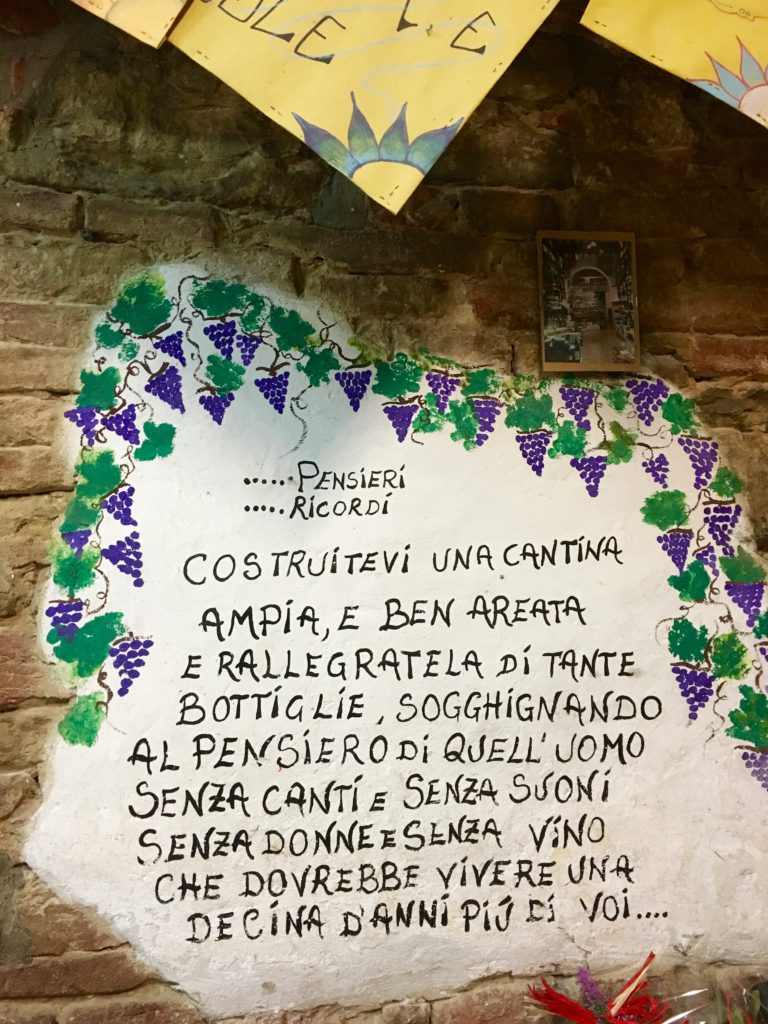 OLE
L E
.....PENSIERI
.....RICORDI
COSTRUITEVI UNA CANTINA
AMPIA, E BEN AREATA
E RALLEGRATELA DI TANTE
BOTTIGLIE, SOGGHIGNANDO
AL PENSIERO DI QUELL'UOMO
SENZA CANTI E SENZA SUONI
SENZA DONNE E SENZA VINO
CHE DOVREBBE VIVERE UNA
DECINA D'ANNI PIÚ DI VOI....